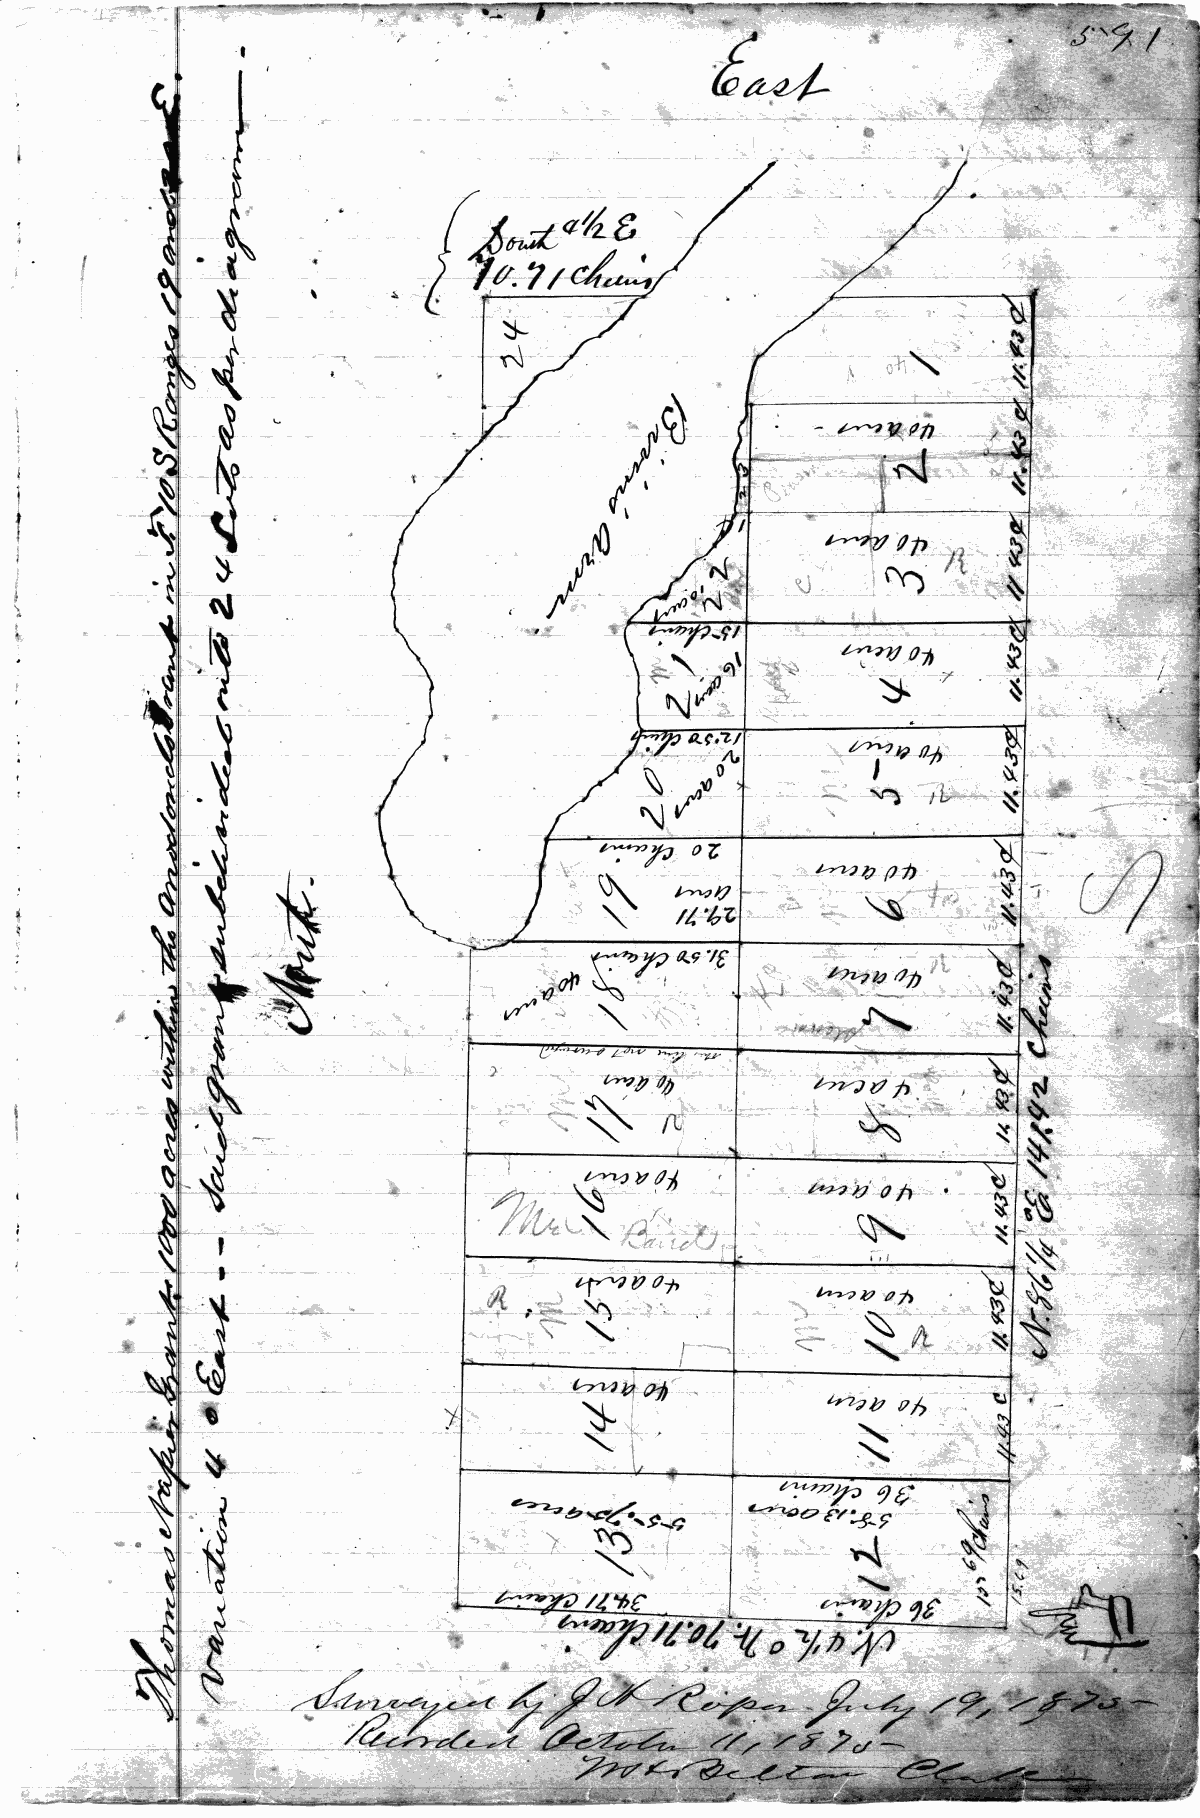 591
East
Thomas Napier Grant 1000 acres within the Arredondo Grant in T 10 S Ranges 19 and 20 E.
Variation 4° East -- Said grant subdivided into 24 Lots as per diagram.
North.
South 4½ E
70.71 Chains
24
1
40
11.43 C
2
40 acres
11.43 C
11.43 C
23
3
40 acres
R
11 43 C
22
10 acres
15 Chains
21
16 acres
4
40 acres
11.43 C
12.50 Chains
20
20 acres
5
40 acres
R
11.43 C
20 Chains
19
29.71
acres
6
40 acres
11.43 C
31.50 Chains
18
40 acres
7
40 acres
11.43 C
this line not surveyed
17
40 acres
R
8
4 acres
11.43 C
16
40 acres
Baird
9
40 acres
11.43 C
15
40 acres
R
10
40 acres
R
11.43 C
14
40 acres
11
40 acres
11.43 C
13
55.75 acres
34.71 Chains
36 Chains
58.13 acres
12
36 Chains
15.69 Chains
15.69
N. 86 1/4 E 141.42 Chains
S
N. 4½° W. 70.71 Chains
Surveyed by J N Roper July 19, 1875
Recorded October 11, 1875
Clerk